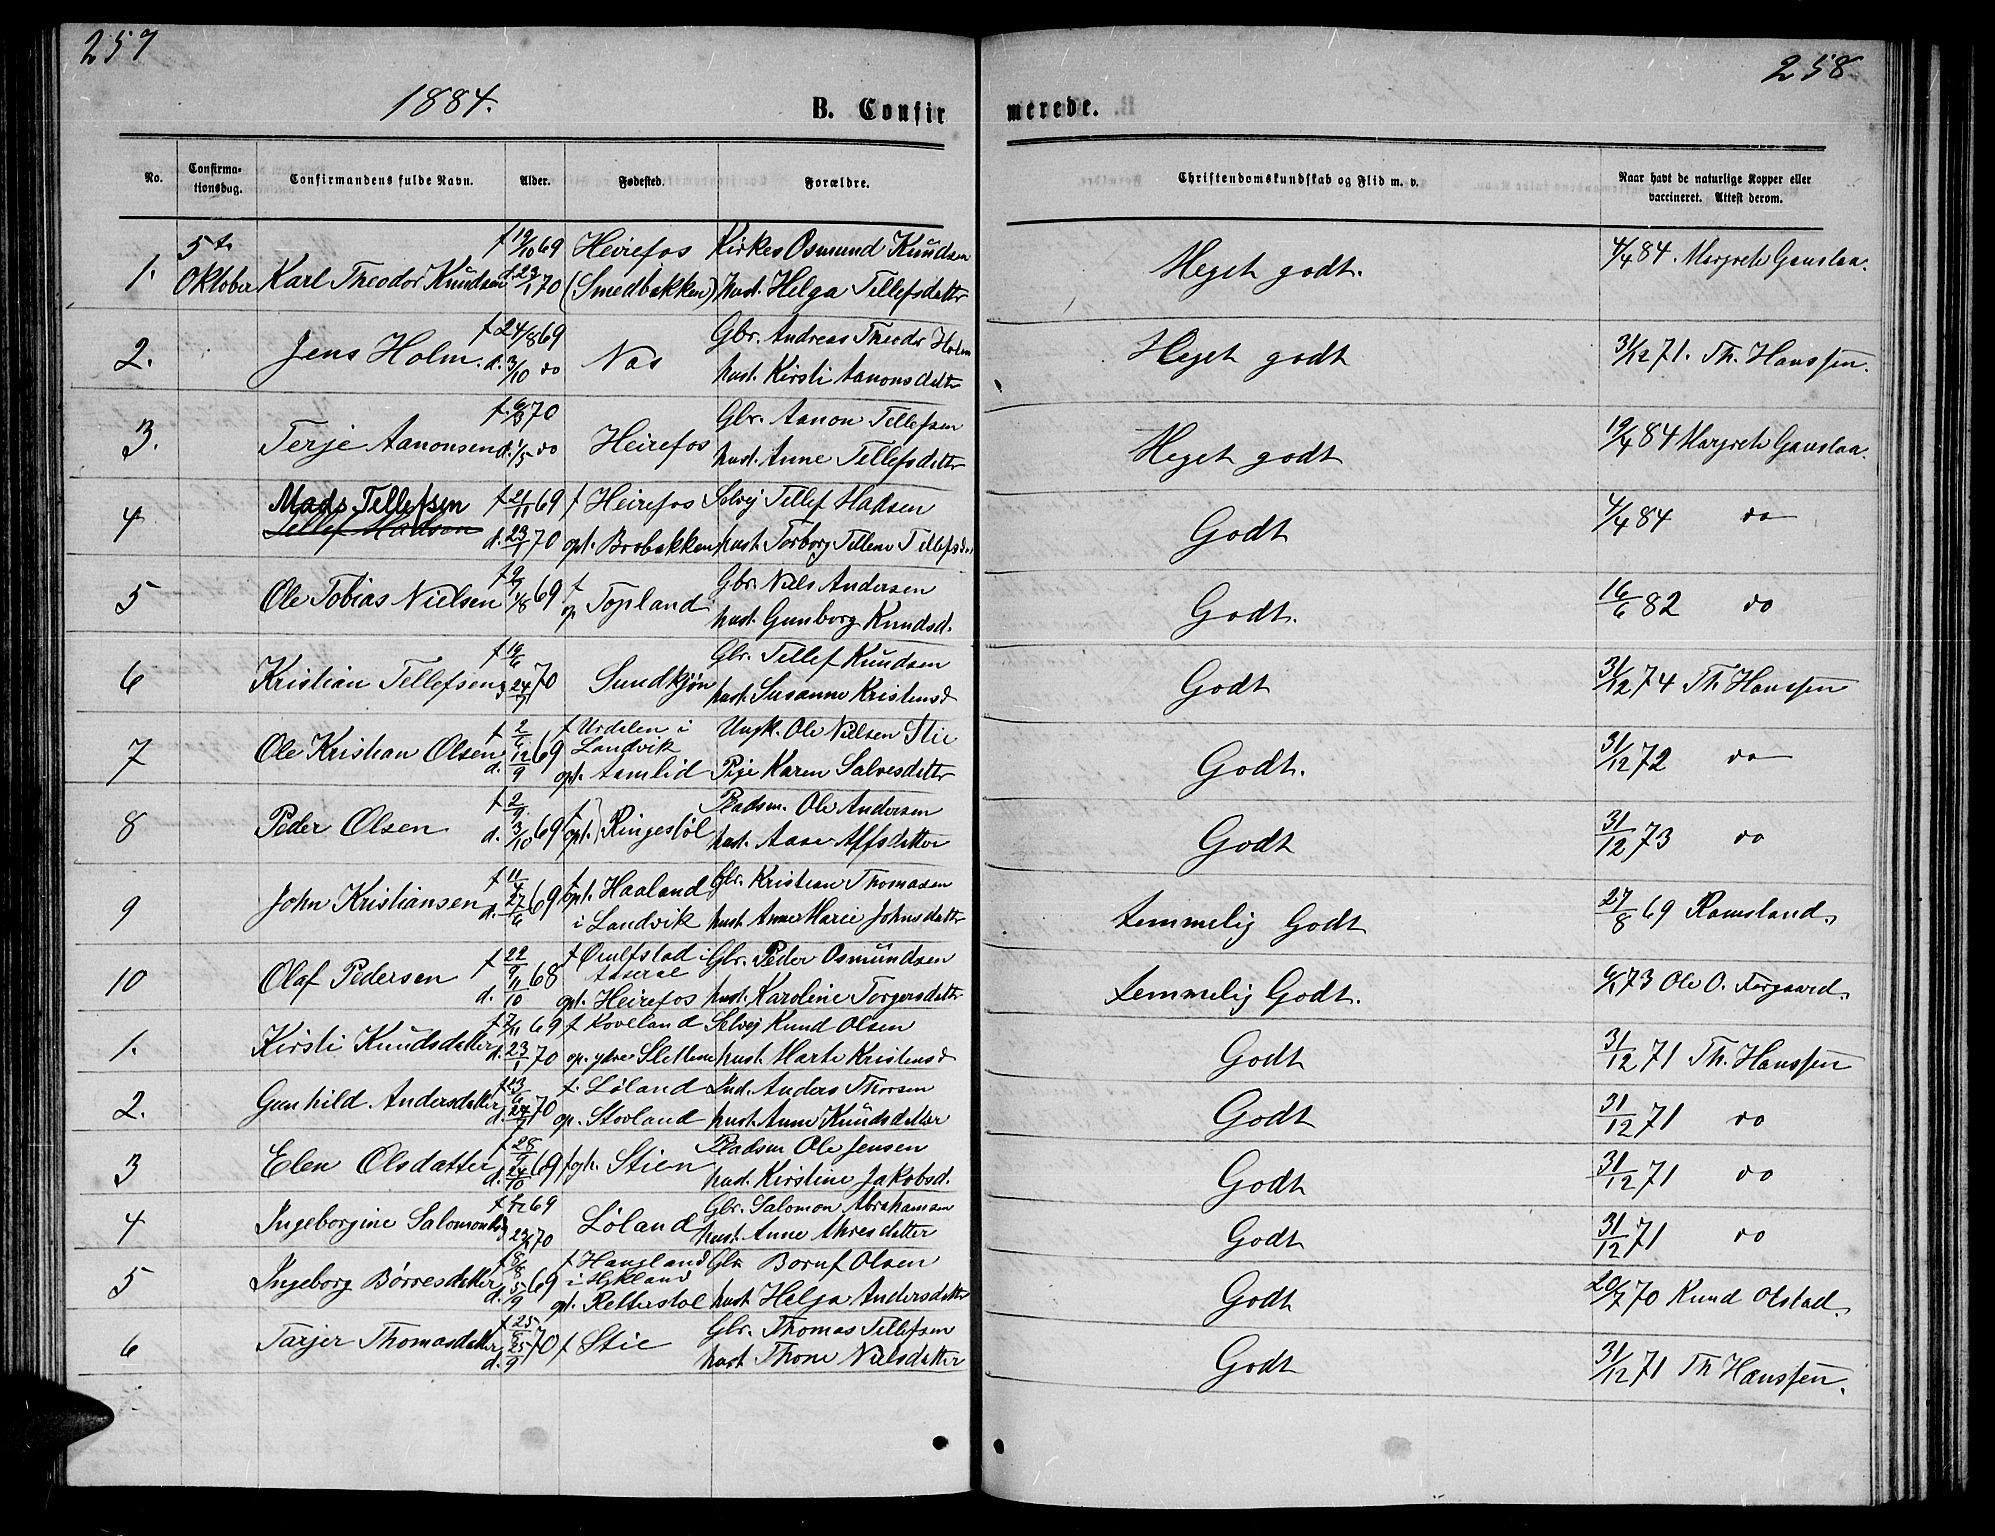 257
258
1884.
B. Confirmerede.
No. Confirmationsdag. Confirmandens fulde Navn. Alder. Fødested. Forældre. Christendomskundskab og Flid m. v. Naar havt de naturlige Kopper eller vaccineret. Attest derom.
5te Oktober
1. Karl Theodor Knudsen f 19/10 69 d. 23/1 70 Heirefos (Smedbakken) Kirkes Osmund Knudsen hust. Helga Tellefsdatter Meget godt. 4/4 84. Margrete Gauslaa.
2. Jens Holm. f 24/8 69 d. 3/10 do Nas Gbr. Andreas Theodor Holm hust. Kirsti Aanonsdatter Meget godt 31/12 71. Th. Hanssen.
3. Terje Aanonsen f. 6/3 70 d. 1/5 do Heirefos Gbr. Aanon Tellefsen hust. Anne Tellefsdatter Meget godt 19/4 84 Margrete Gauslaa.
4 Mads Tellefsen Tellef Madsen f 21/11 69 d. 23/1 70 f Heirefos opt. Brobakken Selvej Tellef Madsen hust. Torborg Tellene Tellefsd. Godt 4/4 84 do
5 Ole Tobias Nielsen 1/8 69 f op Topland Gbr. Niels Andersen hust. Gunborg Knudsd. Godt. 16/6 82 do
6 Kristian Tellefsen f 19/6 d 24/7 70 Sundkjøn Gbr. Tellef Knudsen hust. Susanne Kristensd Godt 31/12 74 Th Hanssen
7 Ole Kristian Olsen d. 12/9 69 f Urdalen i Landvik opt. Aamlid Ungk. Ole Nielsen Stie Pige Karen Salvesdatter Godt. 31/12 72 do
8 Peder Olsen f 2/9 d. 3/10 69 f opt. Ringestøl Pladsm. Ole Andersen hust. Aase Alfsdatter Godt 31/12 73 do
9 John Kristiansen f 11/4 d. 27/6 69 f opt. Haaland i Landvik Gbr. Kristian Thomasen hust. Anne Marie Johnsdatter temmelig Godt 27/8 69 Ramsland.
10 Olaf Pedersen f 22/9 d. 11/10 68 opt. Heirefos Gbr. Peder Osmundsen hust. Karoline Torgersdatter temmelig Godt. 73 Ole O.
1. Kirsti Knudsdatter 69 d. 23/1 70 f Koveland op. ydre Slettene Selvej Knud Olsen hust. Marte Kristensd Godt 31/12 71 Th. Hanssen
2. Gunhild Andersdatter f 13/6 d. 24/7 70 f. Løland op. Stovland Ind. Anders Thorsen hust. Anne Knudsdatter Godt 31/12 71 do
3 Elen Olsdatter f 28/9 d. 24/10 69 f oph. Stien Pladsm Ole Jensen hust. Kirstine Jakobsd. Godt 31/12 71 do
4 Ingeborgine Salomonsd 69 23/1 70 Løland Gbr. Salomon Abrahamsen hust. Anne Andersdatter Godt 31/12 71 do
5 Ingeborg Børresdatter f 8/8 d. 5/9 69 f Haugland i Mykland opt. Retterstøl Gbr. Olsen hust. Helga Andersdatter Godt 20/7 70 Knud Olstad.
6 Tarjer Thomasdatter f 25/8 d. 25/9 70 f Stie Gbr. Thomas Tellefsen hust. Thone Nielsdatter Godt 31/12 71 Th Hanssen.